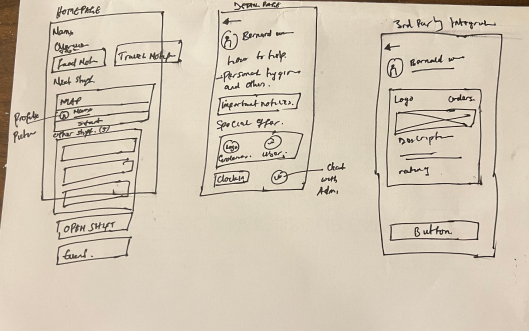 HOMEPAGE
Name
Travel Notef
Next Shift
MAP
Name
Profile
Other shift. (5)
OPEN SHIFT
DETAIL PAGE
Bernard
how to help.
personal hygiene
and others.
Important notices.
Special offer.
Logo
Uber.
Clocking
Chat
with
Admin
3rd Party Integrat
Bernald
Logo
orders.
Descripti
rating
Button